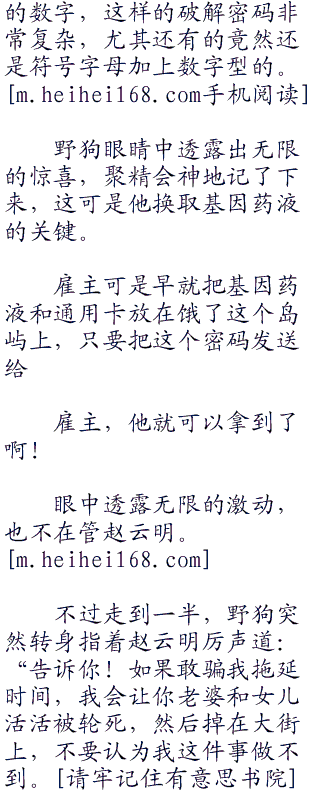 的数字，这样的破解密码非
常复杂，尤其还有的竟然还
是符号字母加上数字型的。
[m.heihei168.com手机阅读]
野狗眼睛中透露出无限
的惊喜，聚精会神地记了下
来，这可是他换取基因药液
的关键。
雇主可是早就把基因药
液和通用卡放在饿了这个岛
屿上，只要把这个密码发送
给
雇主，他就可以拿到了
啊！
眼中透露无限的激动，
也不在管赵云明。
[m.heihei168.com]
不过走到一半，野狗突
然转身指着赵云明厉声道：
“告诉你！如果敢骗我拖延
时间，我会让你老婆和女儿
活活被轮死，然后掉在大街
上，不要认为我这件事做不
到。[请牢记住有意思书院]